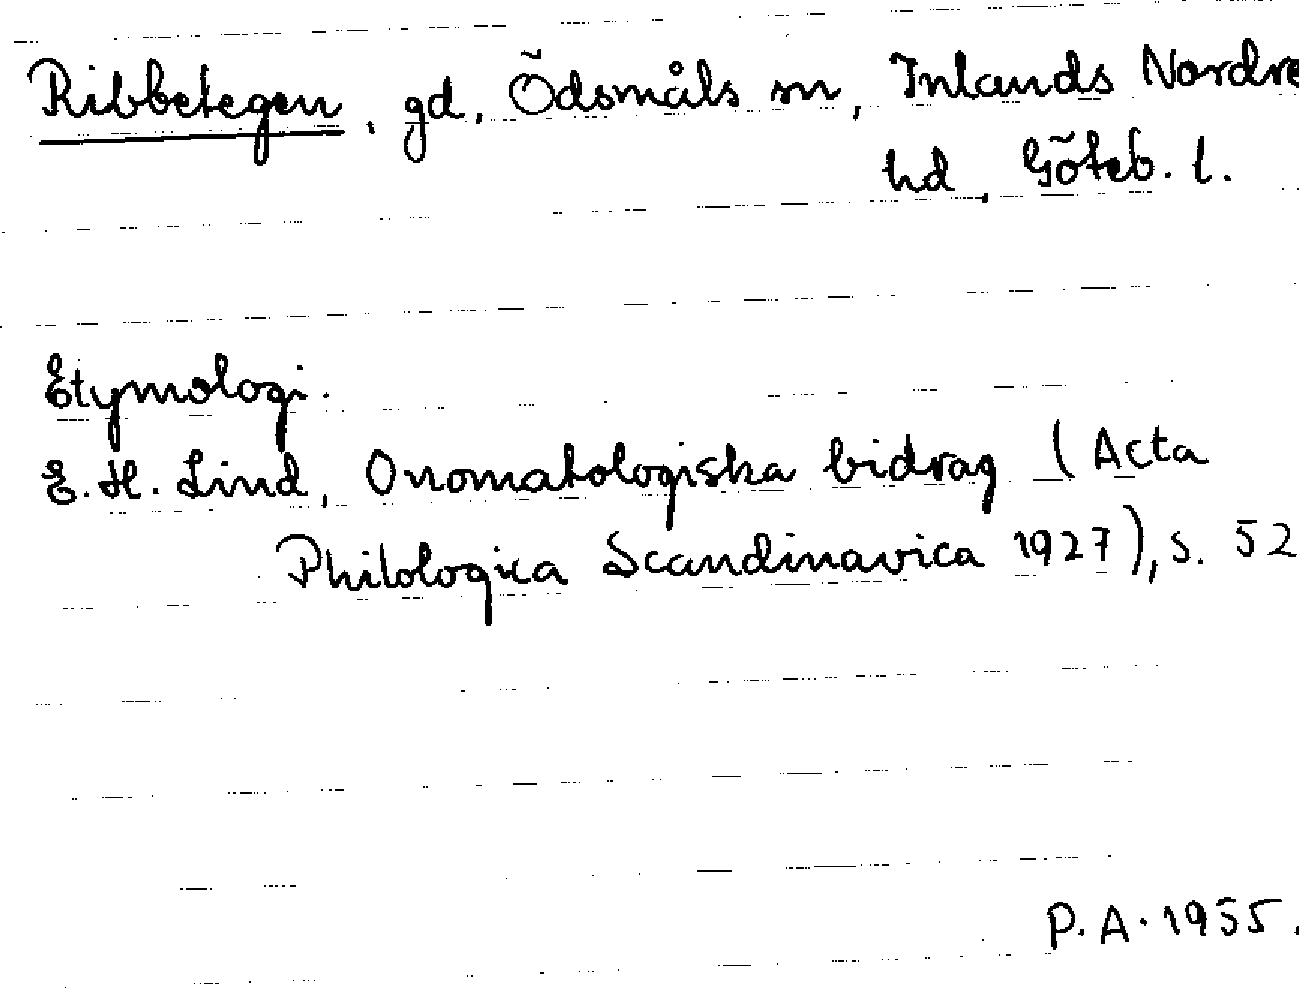 Ribbetegen, gd, Ödsmåls sn, Inlands Nordre
hd, Göteb. l.
Etymologi.
E. H. Lind, Onomatologiska bidrag (Acta
Philologica Scandinavica 1927), s. 52
P. A. 1955.